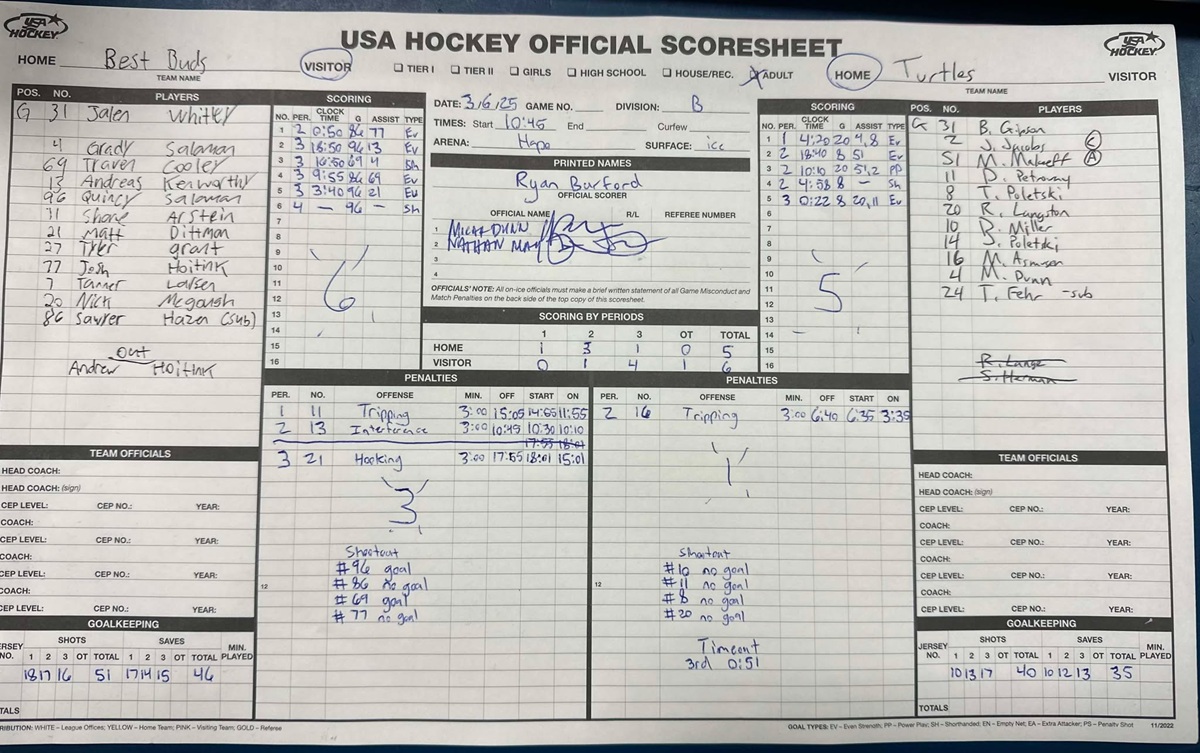 USA HOCKEY
USA HOCKEY OFFICIAL SCORESHEET
USA HOCKEY
HOME Best Buds VISITOR
TEAM NAME
☐ TIER I ☐ TIER II ☐ GIRLS ☐ HIGH SCHOOL ☐ HOUSE/REC. ☒ ADULT
HOME Turtles VISITOR
TEAM NAME
POS. NO. PLAYERS
G 31 Jalen Whitley
4 Grady Salaman
69 Traven Cooley
13 Andreas Kenworthy
96 Quincy Salaman
11 Shane Arstein
21 Matt Dittman
27 Tyler grant
77 Josh Hoitink
7 Tanner Larsen
20 Nick Mcgough
86 Sawyer Hazen (sub)
out
Andrew Hoitink
SCORING
NO. PER. CLOCK TIME G ASSIST TYPE
1 2 0:50 86 77 Ev
2 3 18:50 96 13 Ev
3 3 16:50 69 4 Sh
4 3 9:55 86 69 Ev
5 3 3:40 96 21 Ev
6 4 — 96 — Sh
7
8
9
10
11
12
13
14
15
16
6
DATE: 3/6/25 GAME NO. DIVISION: B
TIMES: Start 10:45 End Curfew
ARENA: Hope SURFACE: ice
PRINTED NAMES
Ryan Burford
OFFICIAL SCORER
OFFICIAL NAME R/L REFEREE NUMBER
1 MICAH DUNN
2 NATHAN MAY
3
4
OFFICIALS' NOTE: All on-ice officials must make a brief written statement of all Game Misconduct and
Match Penalties on the back side of the top copy of this scoresheet.
SCORING BY PERIODS
1 2 3 OT TOTAL
HOME 1 3 1 0 5
VISITOR 0 1 4 1 6
SCORING
NO. PER. CLOCK TIME G ASSIST TYPE
1 1 4:20 20 4,8 Ev
2 2 18:40 8 51 Ev
3 2 10:10 20 51,2 PP
4 2 4:58 8 — Sh
5 3 0:22 8 20,11 Ev
6
7
8
9
10
11
12
13
14
15
16
5
POS. NO. PLAYERS
G 31 B. Gipson
2 J. Jacobs C
51 M. Makeeff A
11 D. Petrovny
8 T. Poletski
20 R. Langston
10 R. Miller
14 J. Poletski
16 M. Asmusen
4 M. Dunn
24 T. Fehr -sub
R. Lange
S. Herman
PENALTIES
PER. NO. OFFENSE MIN. OFF START ON
1 11 Tripping 3:00 15:05 14:55 11:55
2 13 Interference 3:00 10:45 10:30 10:10
17:55 18:01
3 21 Hooking 3:00 17:55 18:01 15:01
3
Shootout
#96 goal
#86 no goal
#69 goal
#77 no goal
12
PENALTIES
PER. NO. OFFENSE MIN. OFF START ON
2 16 Tripping 3:00 6:40 6:35 3:35
1
Shootout
#10 no goal
#11 no goal
#8 no goal
#20 no goal
12
Timeout
3rd 0:51
TEAM OFFICIALS
HEAD COACH:
HEAD COACH: (sign)
CEP LEVEL: CEP NO.: YEAR:
COACH:
CEP LEVEL: CEP NO.: YEAR:
COACH:
CEP LEVEL: CEP NO.: YEAR:
COACH:
CEP LEVEL: CEP NO.: YEAR:
GOALKEEPING
JERSEY NO. SHOTS SAVES MIN. PLAYED
1 2 3 OT TOTAL 1 2 3 OT TOTAL
18 17 16 51 17 14 15 46
TOTALS
TEAM OFFICIALS
HEAD COACH:
HEAD COACH: (sign)
CEP LEVEL: CEP NO.: YEAR:
COACH:
CEP LEVEL: CEP NO.: YEAR:
COACH:
CEP LEVEL: CEP NO.: YEAR:
COACH:
CEP LEVEL: CEP NO.: YEAR:
GOALKEEPING
JERSEY NO. SHOTS SAVES MIN. PLAYED
1 2 3 OT TOTAL 1 2 3 OT TOTAL
10 13 17 40 10 12 13 35
TOTALS
RIBUTION: WHITE – League Offices; YELLOW – Home Team; PINK – Visiting Team; GOLD – Referee
GOAL TYPES: EV – Even Strength; PP – Power Play; SH – Shorthanded; EN – Empty Net; EA – Extra Attacker; PS – Penalty Shot 11/2022